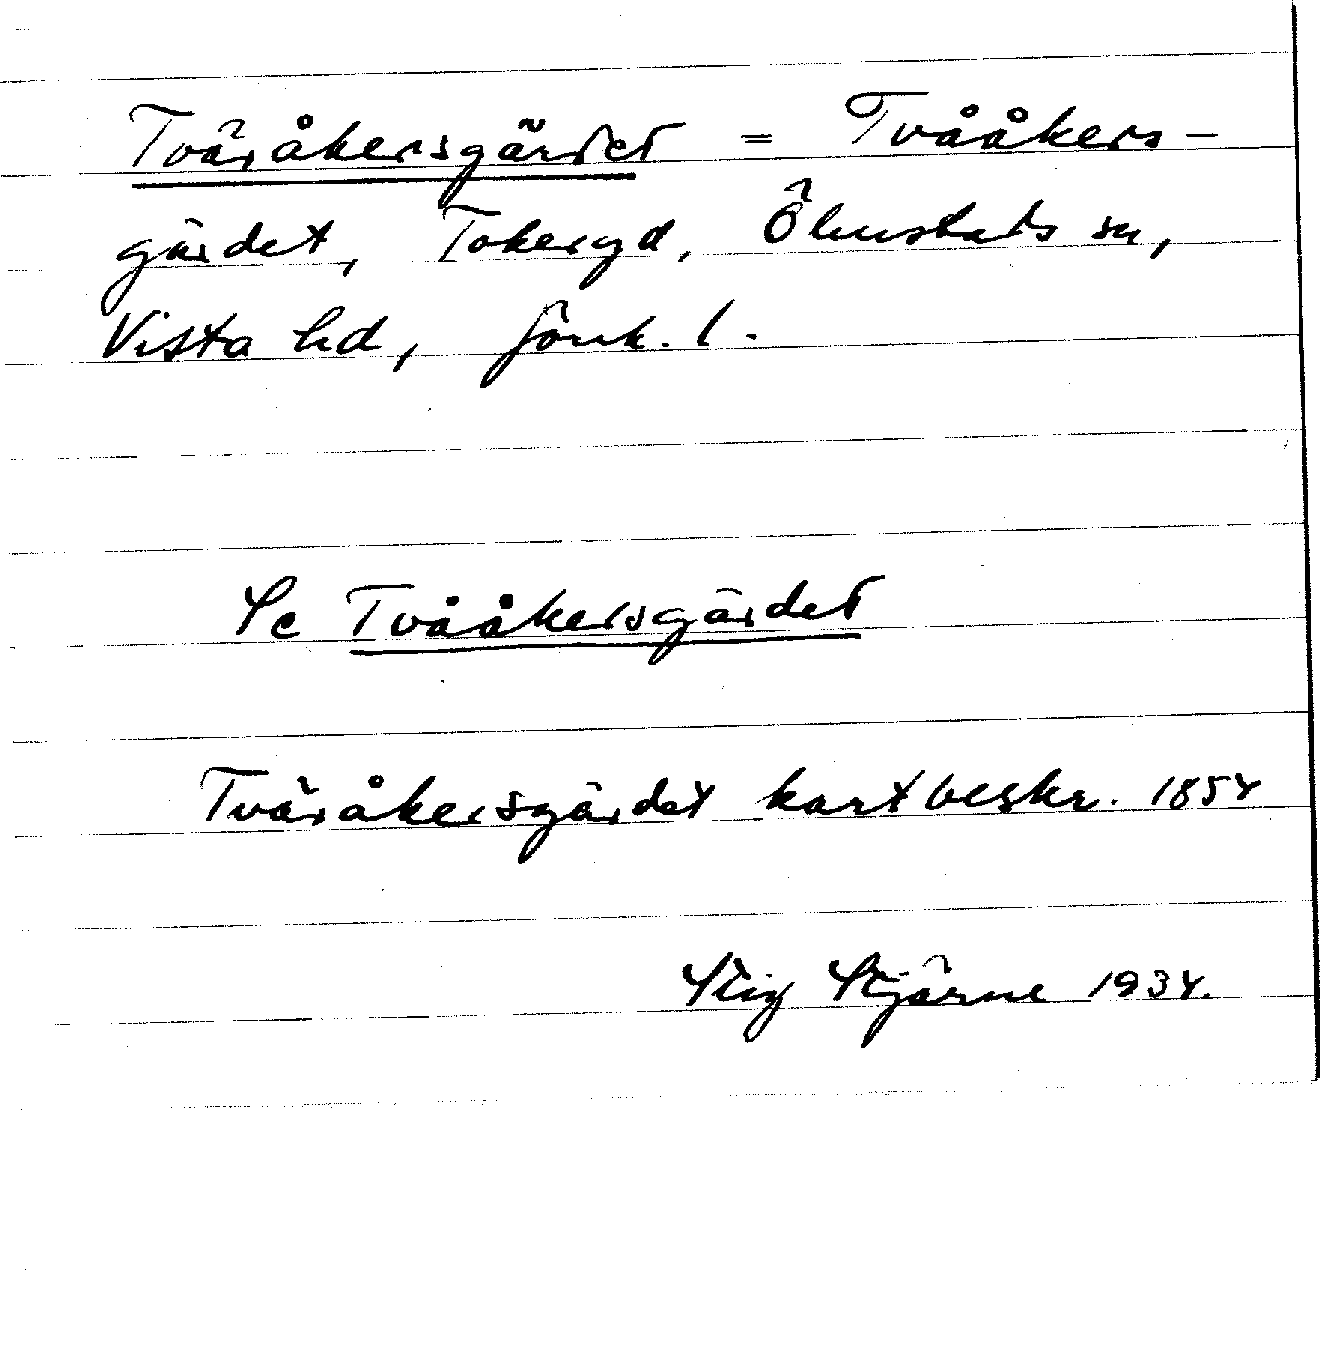 Tväråkersgärdet = Tvååkers-
gärdet, Tokeryd, Ölmstads sn,
Vista hd, Jönk. l.
Se Tvååkersgärdet
Tväråkersgärdet kartbeskr. 1854
Stig Stjärne 1934.